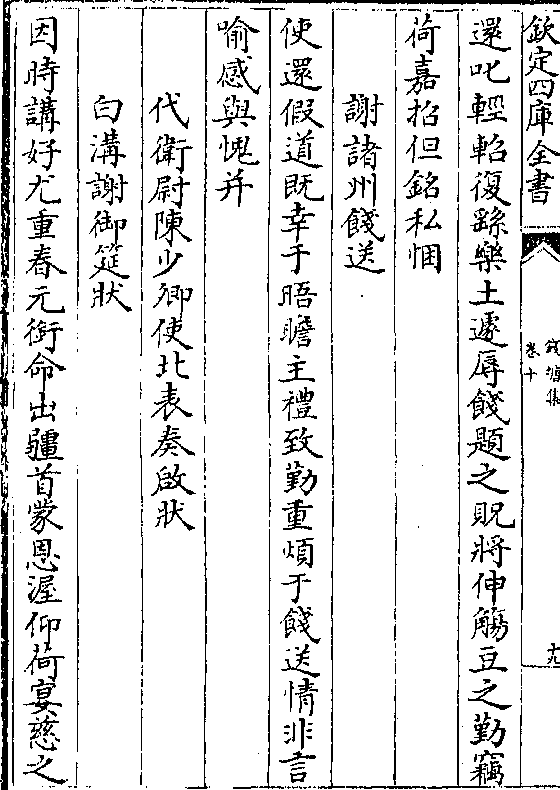 欽定四庫全書
錢塘集
卷十
十九
還叱輕軺復繇樂土遽辱餞題之貺將伸觴豆之勤竊
荷嘉招但銘私悃
謝諸州餞送
使還假道既幸于晤瞻主禮致勤重煩于餞送情非言
喻感與愧并
代衛尉陳少卿使北表奏啟狀
白溝謝御筵狀
因時講好尤重春元銜命出疆首蒙恩渥仰荷宴慈之